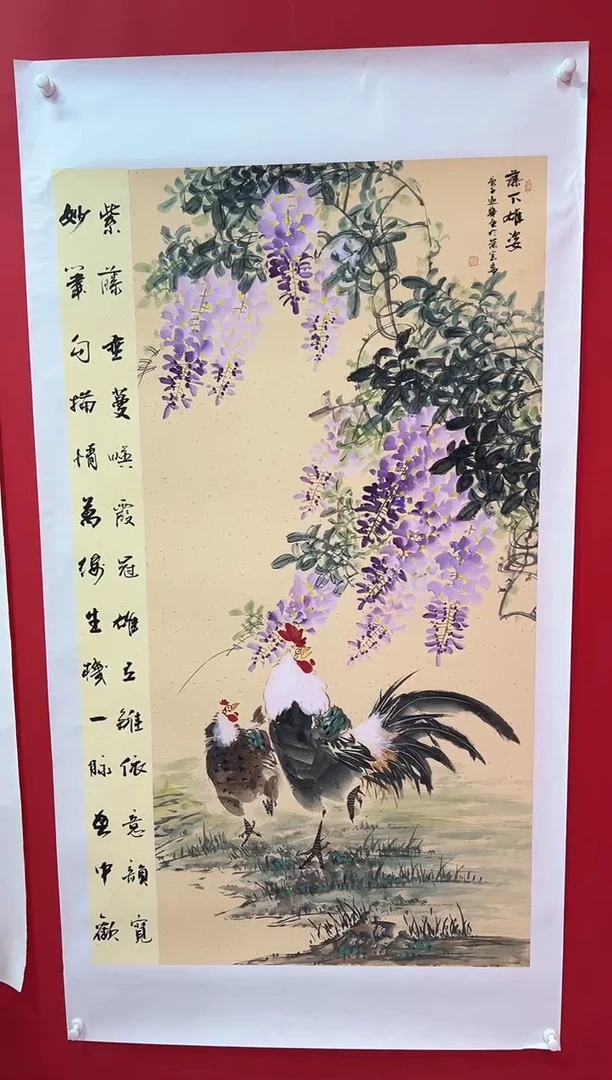 藤下雄姿
紫藤垂蔓暎霞冠雄立雌依意韻寬
妙筆勾描情萬縷生機一脈畫中歡